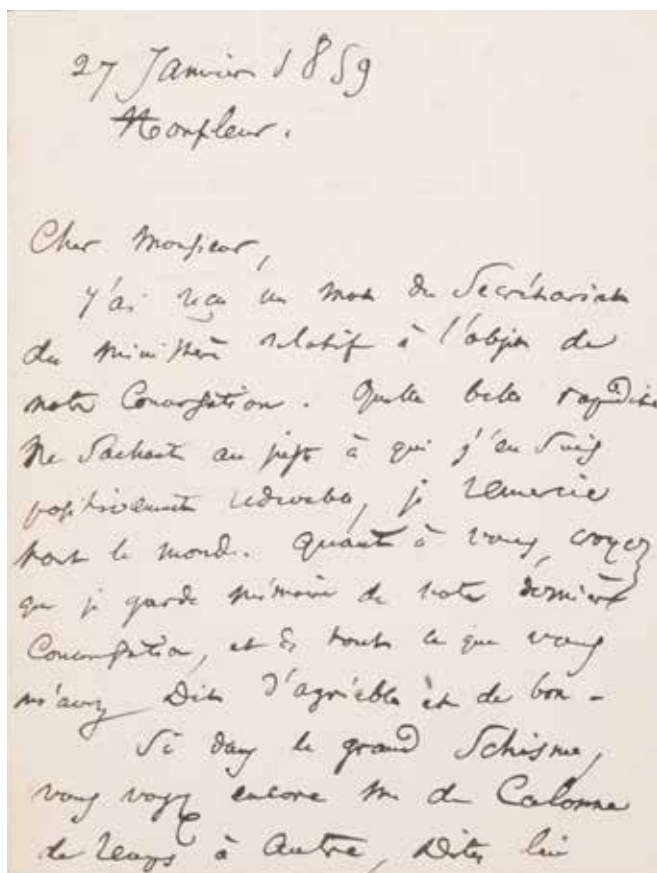 27 Janvier 1859
Honfleur.
Cher Monsieur,
J'ai reçu un mot du Secrétariat
du ministère relatif à l'objet de
notre Conversation. Quelle belle rapidité
Ne Sachant au juste à qui j'en suis
positivement redevable, je remercie
tout le monde. Quant à vous, croyez
que je garde mémoire de notre dernière
Conversation, et de tout ce que vous
m'avez dit d'agréable et de bon –
Si dans le grand Schisme,
vous voyez encore M de Calonne
de temps à Autre, Dites lui